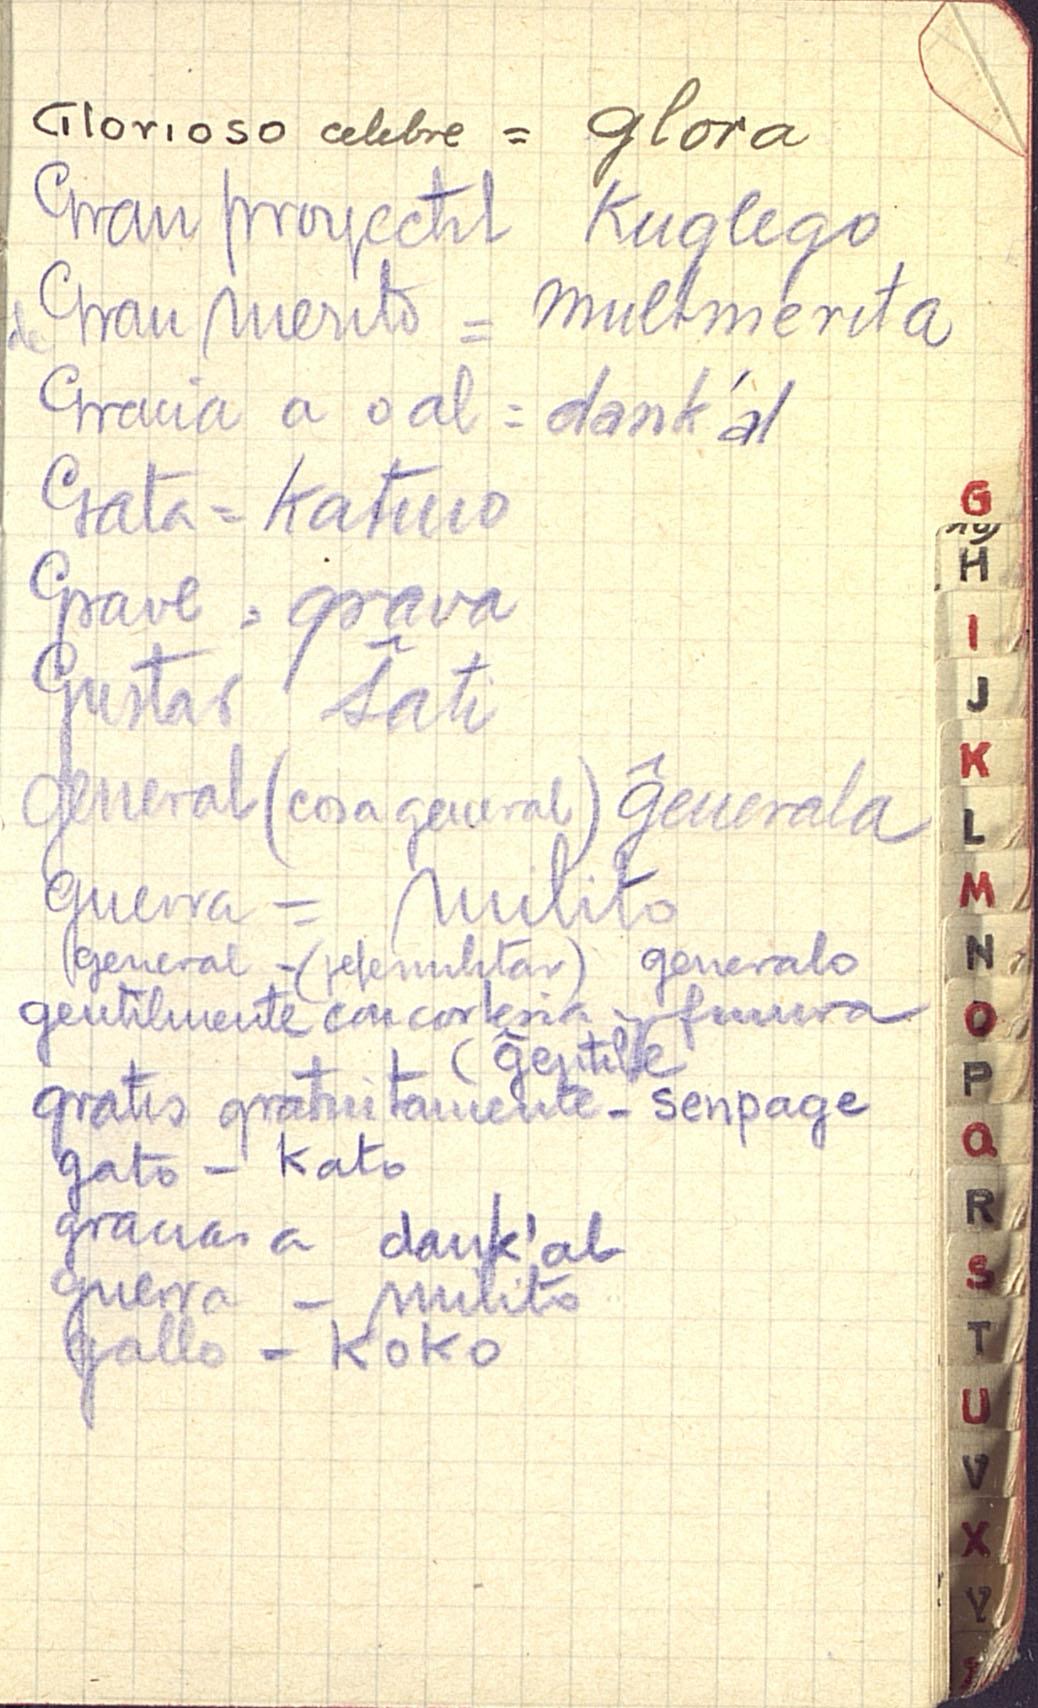 Glorioso celebre = glora
Gran proyectil Kuglego
de Gran merito = multmerita
Gracia a o al = dank'al
Gata = Katino
Grave = grava
Gustar ŝati
general (cosa general) ĝenerala
guerra = milito
general - (jefe militar) generalo
gentilmente con cortesia -
(ĝentile
gratis gratuitamente - senpage
gato - kato
gracias a dank'al
guerra - milito
gallo - koko
G
H
I
J
K
L
M
N
O
P
Q
R
S
T
U
V
X